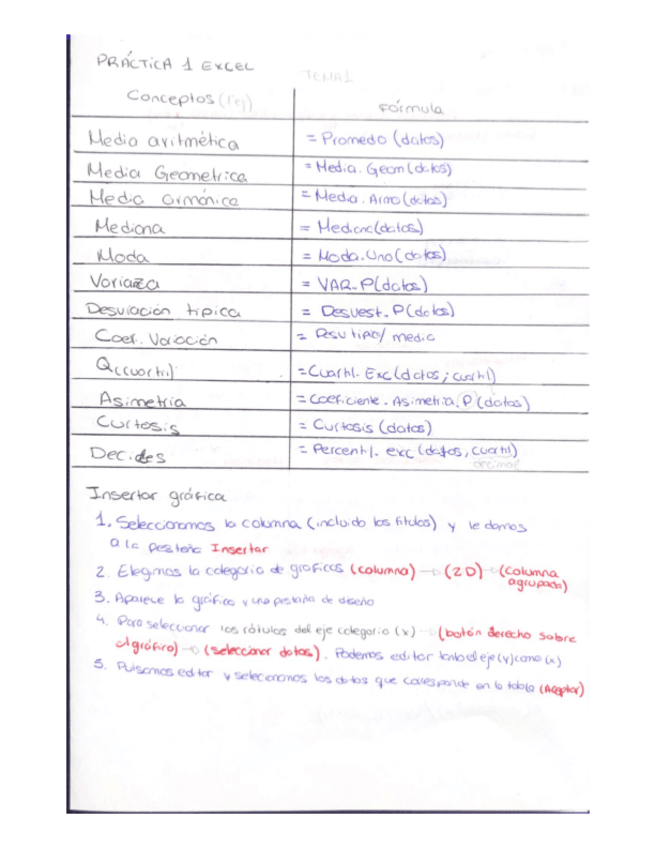 PRÁCTICA 1 EXCEL
TEMA 1
Conceptos (rej) Fórmula
Media aritmética = Promedo (datos)
Media Geometrica = Media. Geom (datos)
Media armónica = Media. Armo (datos)
Mediana = Mediana (datos)
Moda = Moda. Uno (datos)
Varianza = VAR. P (datos)
Desviación tipica = Desvest. P (datos)
Coef. Variación = Desv tipic/ media
Q (cuartil) = Cuartil. Exc (datos; cuartil)
Asimetria = Coeficiente. Asimetria. P (datos)
Curtosis = Curtosis (datos)
Deciles = Percentil. exc (datos, cuartil)
decimal
Insertar gráfica
1. Seleccionamos la columna (incluido los titulos) y le damos
a la pestaña Insertar
2. Elegimos la categoria de graficos (columna) → (2D) → (columna
agrupada)
3. Aparece la gráfica y una pestaña de diseño
4. Para seleccionar los rótulos del eje categoria (x) → (botón derecho sobre
el gráfico) → (seleccionar datos). Podemos editar tanto el eje (y) como (x)
5. Pulsamos editar y seleccionamos los datos que corresponde en la tabla (Aceptar)